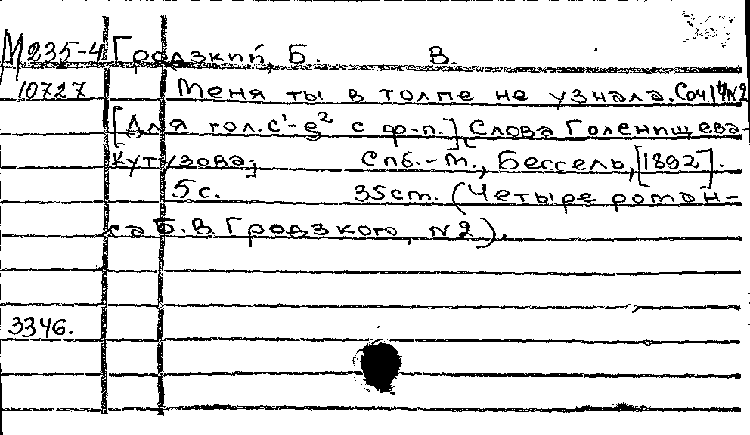 М 235-4 Гродзкий, Б. В.
10727 Меня ты в толпе не узнала. Соч 14 N2
[Для гол. c¹-g² с ф-п.] Слова Голенищева-
Кутузова. Спб.-М., Бессель, [1892].
5 с. 35 cm. (Четыре роман-
са Б. В. Гродзкого, N2).
3346.